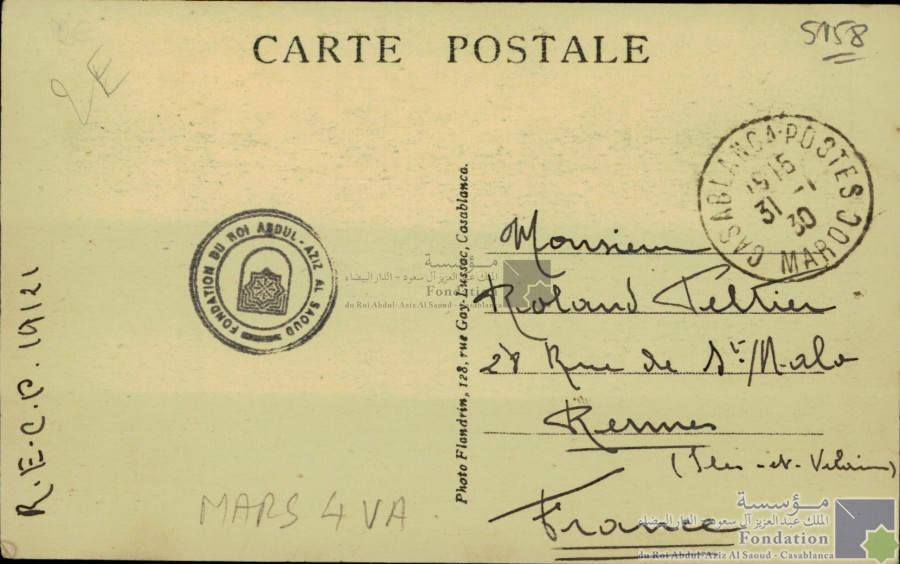 5158
2E
CARTE POSTALE
CASABLANCA-POSTES
1915
31 -1
30
MAROC
FONDATION DU ROI ABDUL-AZIZ AL SAOUD
R.E.C.P. 19/21
MARS 4 VA
Photo Flandrin, 128, rue Gay-Lussac, Casablanca.
Monsieur
Roland Peltier
28 Rue de St Malo
Rennes
(Iles-et-Vilaine)
France
مؤسسة
الملك عبد العزيز آل سعود - الدار البيضاء
Fondation
du Roi Abdul-Aziz Al Saoud - Casablanca
مؤسسة
الملك عبد العزيز آل سعود - الدار البيضاء
Fondation
du Roi Abdul-Aziz Al Saoud - Casablanca